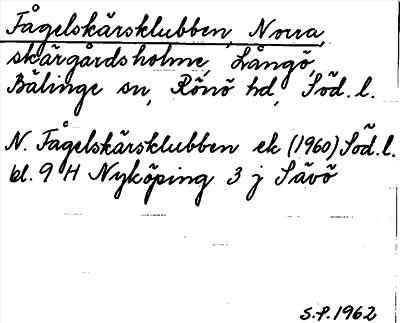 Fågelskärsklubben, Norra,
skärgårdsholme, Långö,
Bälinge sn, Rönö hd, Söd. l.
N. Fågelskärsklubben ek (1960) Söd. l.
bl. 9 H Nyköping 3 j Sävö
S.P. 1962